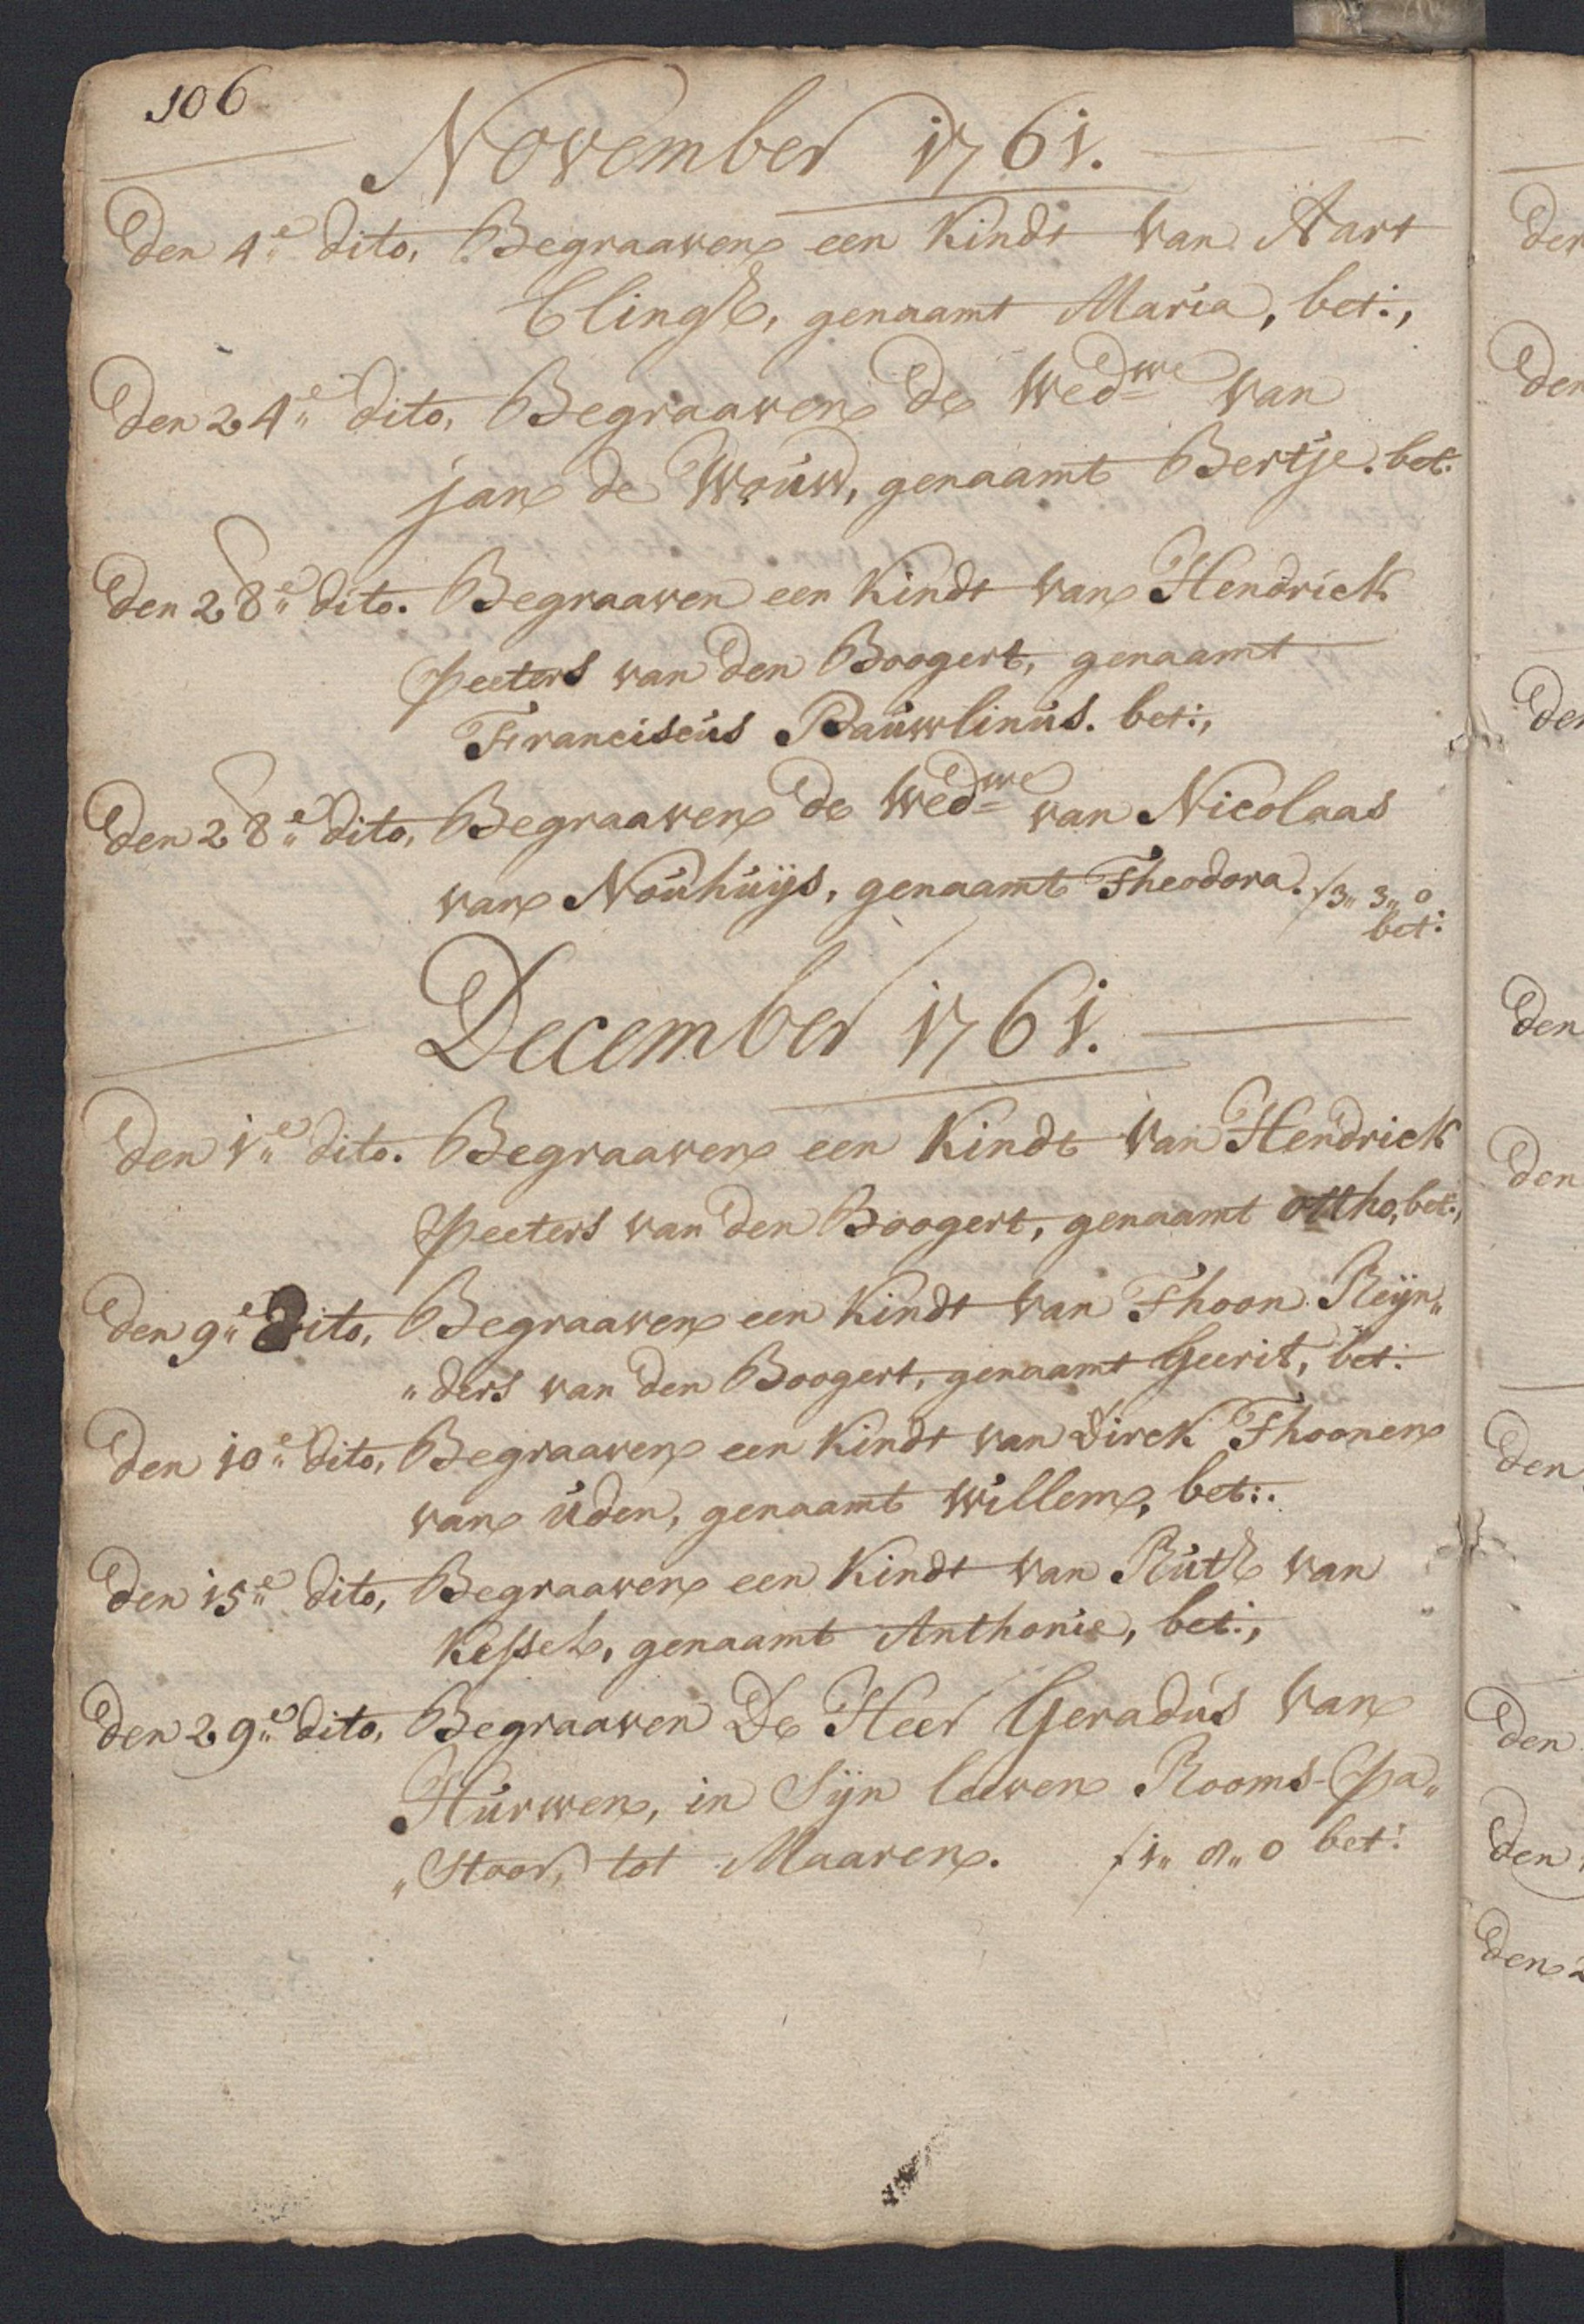 106
November 1761.
Den 4e dito, Begraaven een Kindt van Aart
Clingh, genaamt Maria, bet:,
Den 24e dito, Begraaven De Wedwe van
jan de Wouw, genaamt Bertje. bet:
Den 28e dito. Begraaven een Kindt van Hendrick
Peeters van den Boogert, genaamt
Franciscus Pauwlinus. bet:,
Den 28e dito, Begraaven De Wedwe van Nicolaas
van Nouhuijs, genaamt Theodora. f3,, 3,, 0
bet:
December 1761.
Den 1e dito. Begraaven een Kindt van Hendrick
Peeters van den Boogert, genaamt Ottho, bet:,
Den 9e Dito, Begraaven een Kindt van Thoon Reijn„
„ders van den Boogert, genaamt Geerit, bet:
Den 10e dito, Begraaven een Kindt van Dirck Thoonen
van Uden, genaamt Willem, bet:.
Den 15e dito, Begraaven een Kindt van Ruth van
Kessel, genaamt Anthonie, bet:,
Den 29e dito, Begraaven De Heer Geradus van
Hurwen, in Sijn leeven Rooms-Pa„
„stoor, tot Maaren. bet: